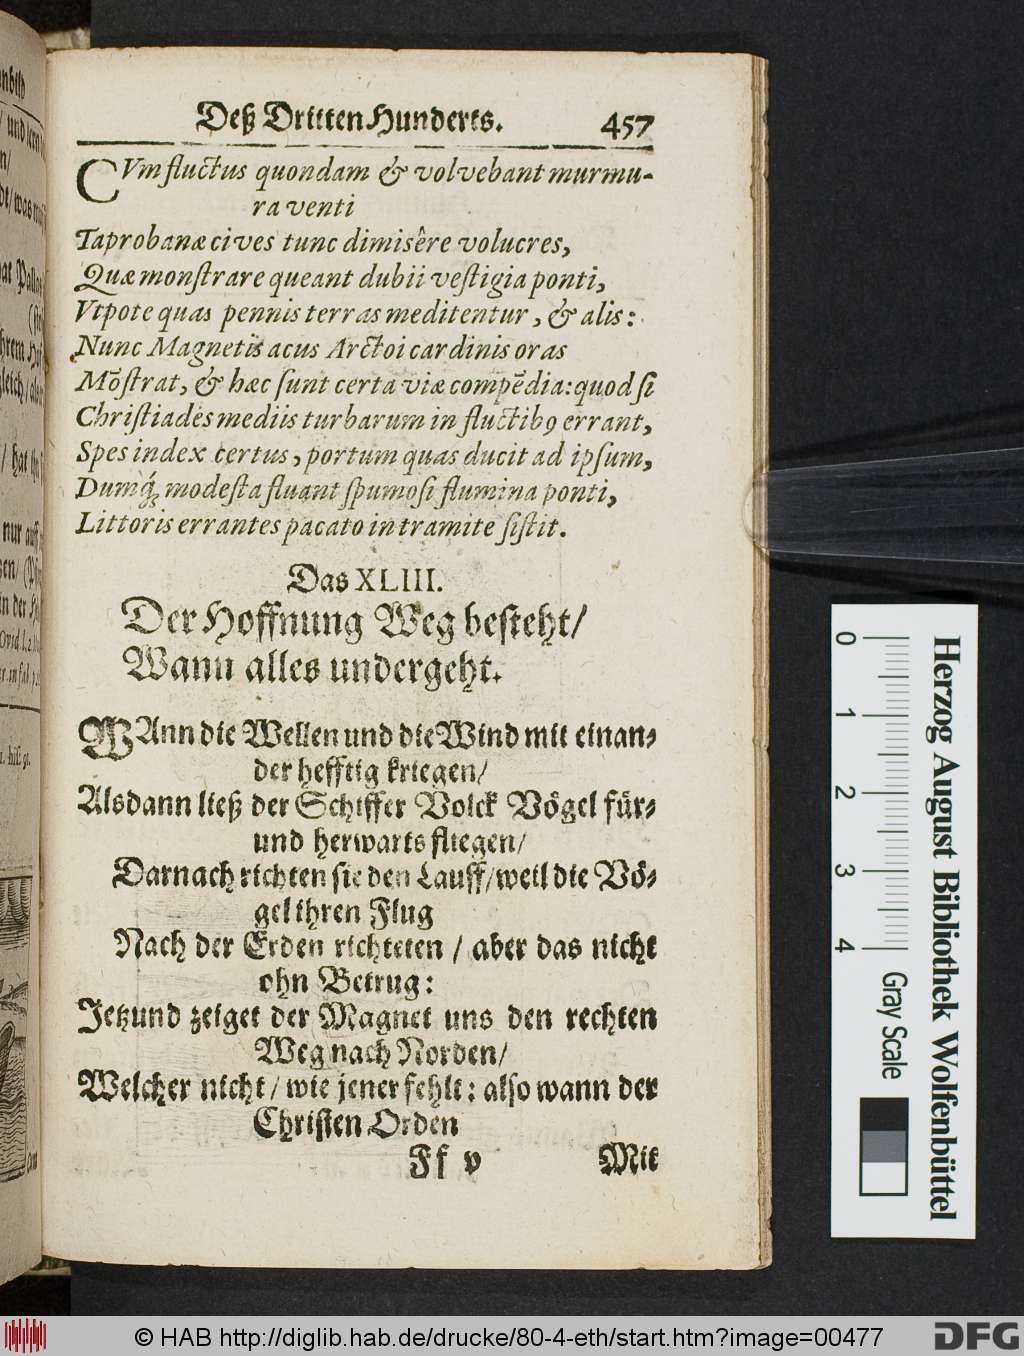 Deß Dritten Hunderts. 457
CVm fluctus quondam & volvebant murmu-
ra venti
Taprobanæ cives tunc dimisêre volucres,
Quæ monſtrare queant dubii veſtigia ponti,
Vtpote quas pennis terras meditentur, & alis:
Nunc Magnetis acus Arctoi cardinis oras
Mōſtrat, & hæc ſunt certa viæ compēdia: quod ſi
Chriſtiades mediis turbarum in fluctibꝰ errant,
Spes index certus, portum quas ducit ad ipſum,
Dumq́ꝫ modeſta fluant ſpumoſi flumina ponti,
Littoris errantes pacato in tramite ſiſtit.
Das XLIII.
Der Hoffnung Weg beſteht/
Wann alles undergeht.
WAnn die Wellen und die Wind mit einan⸗
der hefftig kriegen/
Alsdann ließ der Schiffer Volck Vögel für⸗
und herwarts fliegen/
Darnach richten sie den Lauff/ weil die Vö⸗
gel ihren Flug
Nach der Erden richteten / aber das nicht
ohn Betrug:
Jetzund zeiget der Magnet uns den rechten
Weg nach Norden/
Welcher nicht / wie jener fehlt: alſo wann der
Chriſten Orden
Ff v Mit
Herzog August Bibliothek Wolfenbüttel
0 1 2 3 4 Gray Scale
© HAB http://diglib.hab.de/drucke/80-4-eth/start.htm?image=00477
DFG